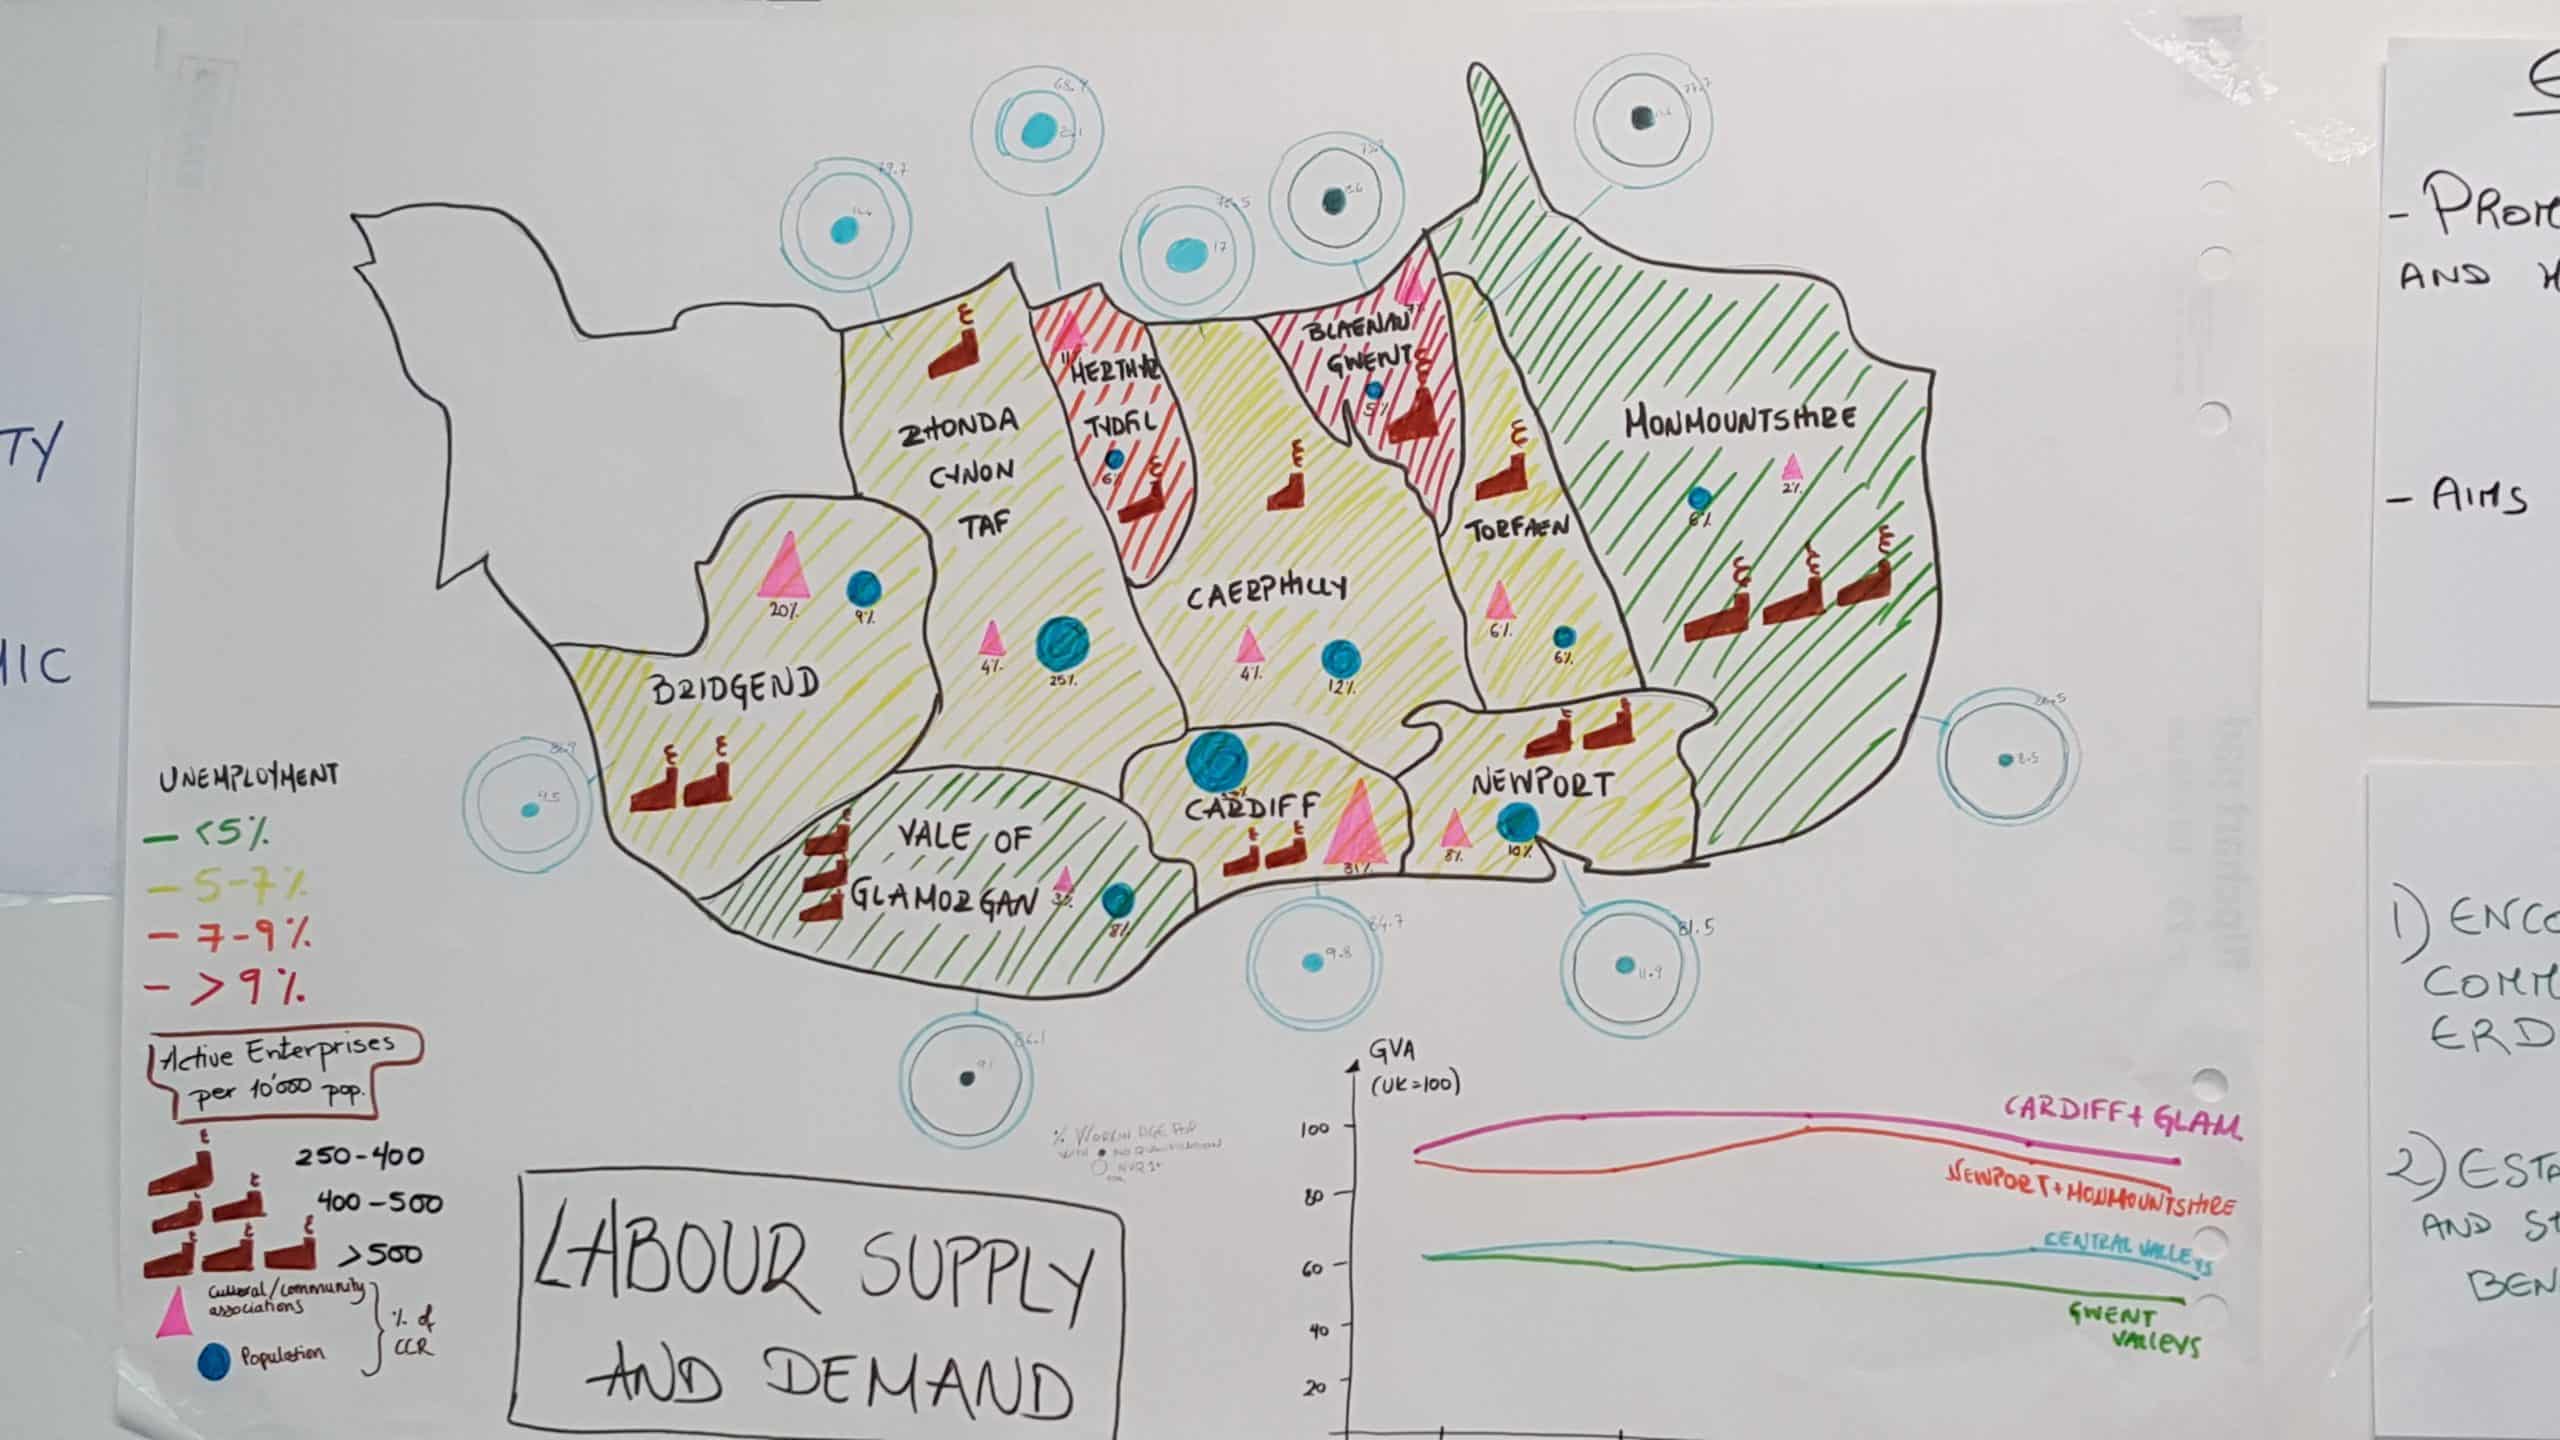 TY
MIC
68.4
77.7
79.7
78.5
17
ZHONDA
CYNON
TAF
4%
25%
11
MERTHYR
TYDFIL
6%
CAERPHILLY
4%
12%
BLAENAU
GWENT
5%
TORFAEN
6%
6%
MONMOUNTSHIRE
2%
6%
20%
9%
BRIDGEND
9.5
VALE OF
GLAMORGAN
3%
8%
CARDIFF
31%
NEWPORT
8%
10%
8.5
84.7
9.8
81.5
11.9
86.1
9.1
UNEMPLOYMENT
- <5%
- 5-7%
- 7-9%
- >9%
Active Enterprises
per 10'000 pop.
250-400
400-500
>500
Cultural/community
associations
Population
% of
CCR
% WORKING AGE POP
WITH ● NO QUALIFICATION
LABOUR SUPPLY
AND DEMAND
GVA
(UK=100)
100
80
60
40
20
CARDIFF + GLAM
NEWPORT+MONMOUNTSHIRE
CENTRAL VALLEYS
GWENT
VALLEYS
- PROM
AND H
- AIMS
1) ENCO
COMM
ERD
2) ESTA
AND ST
BEN